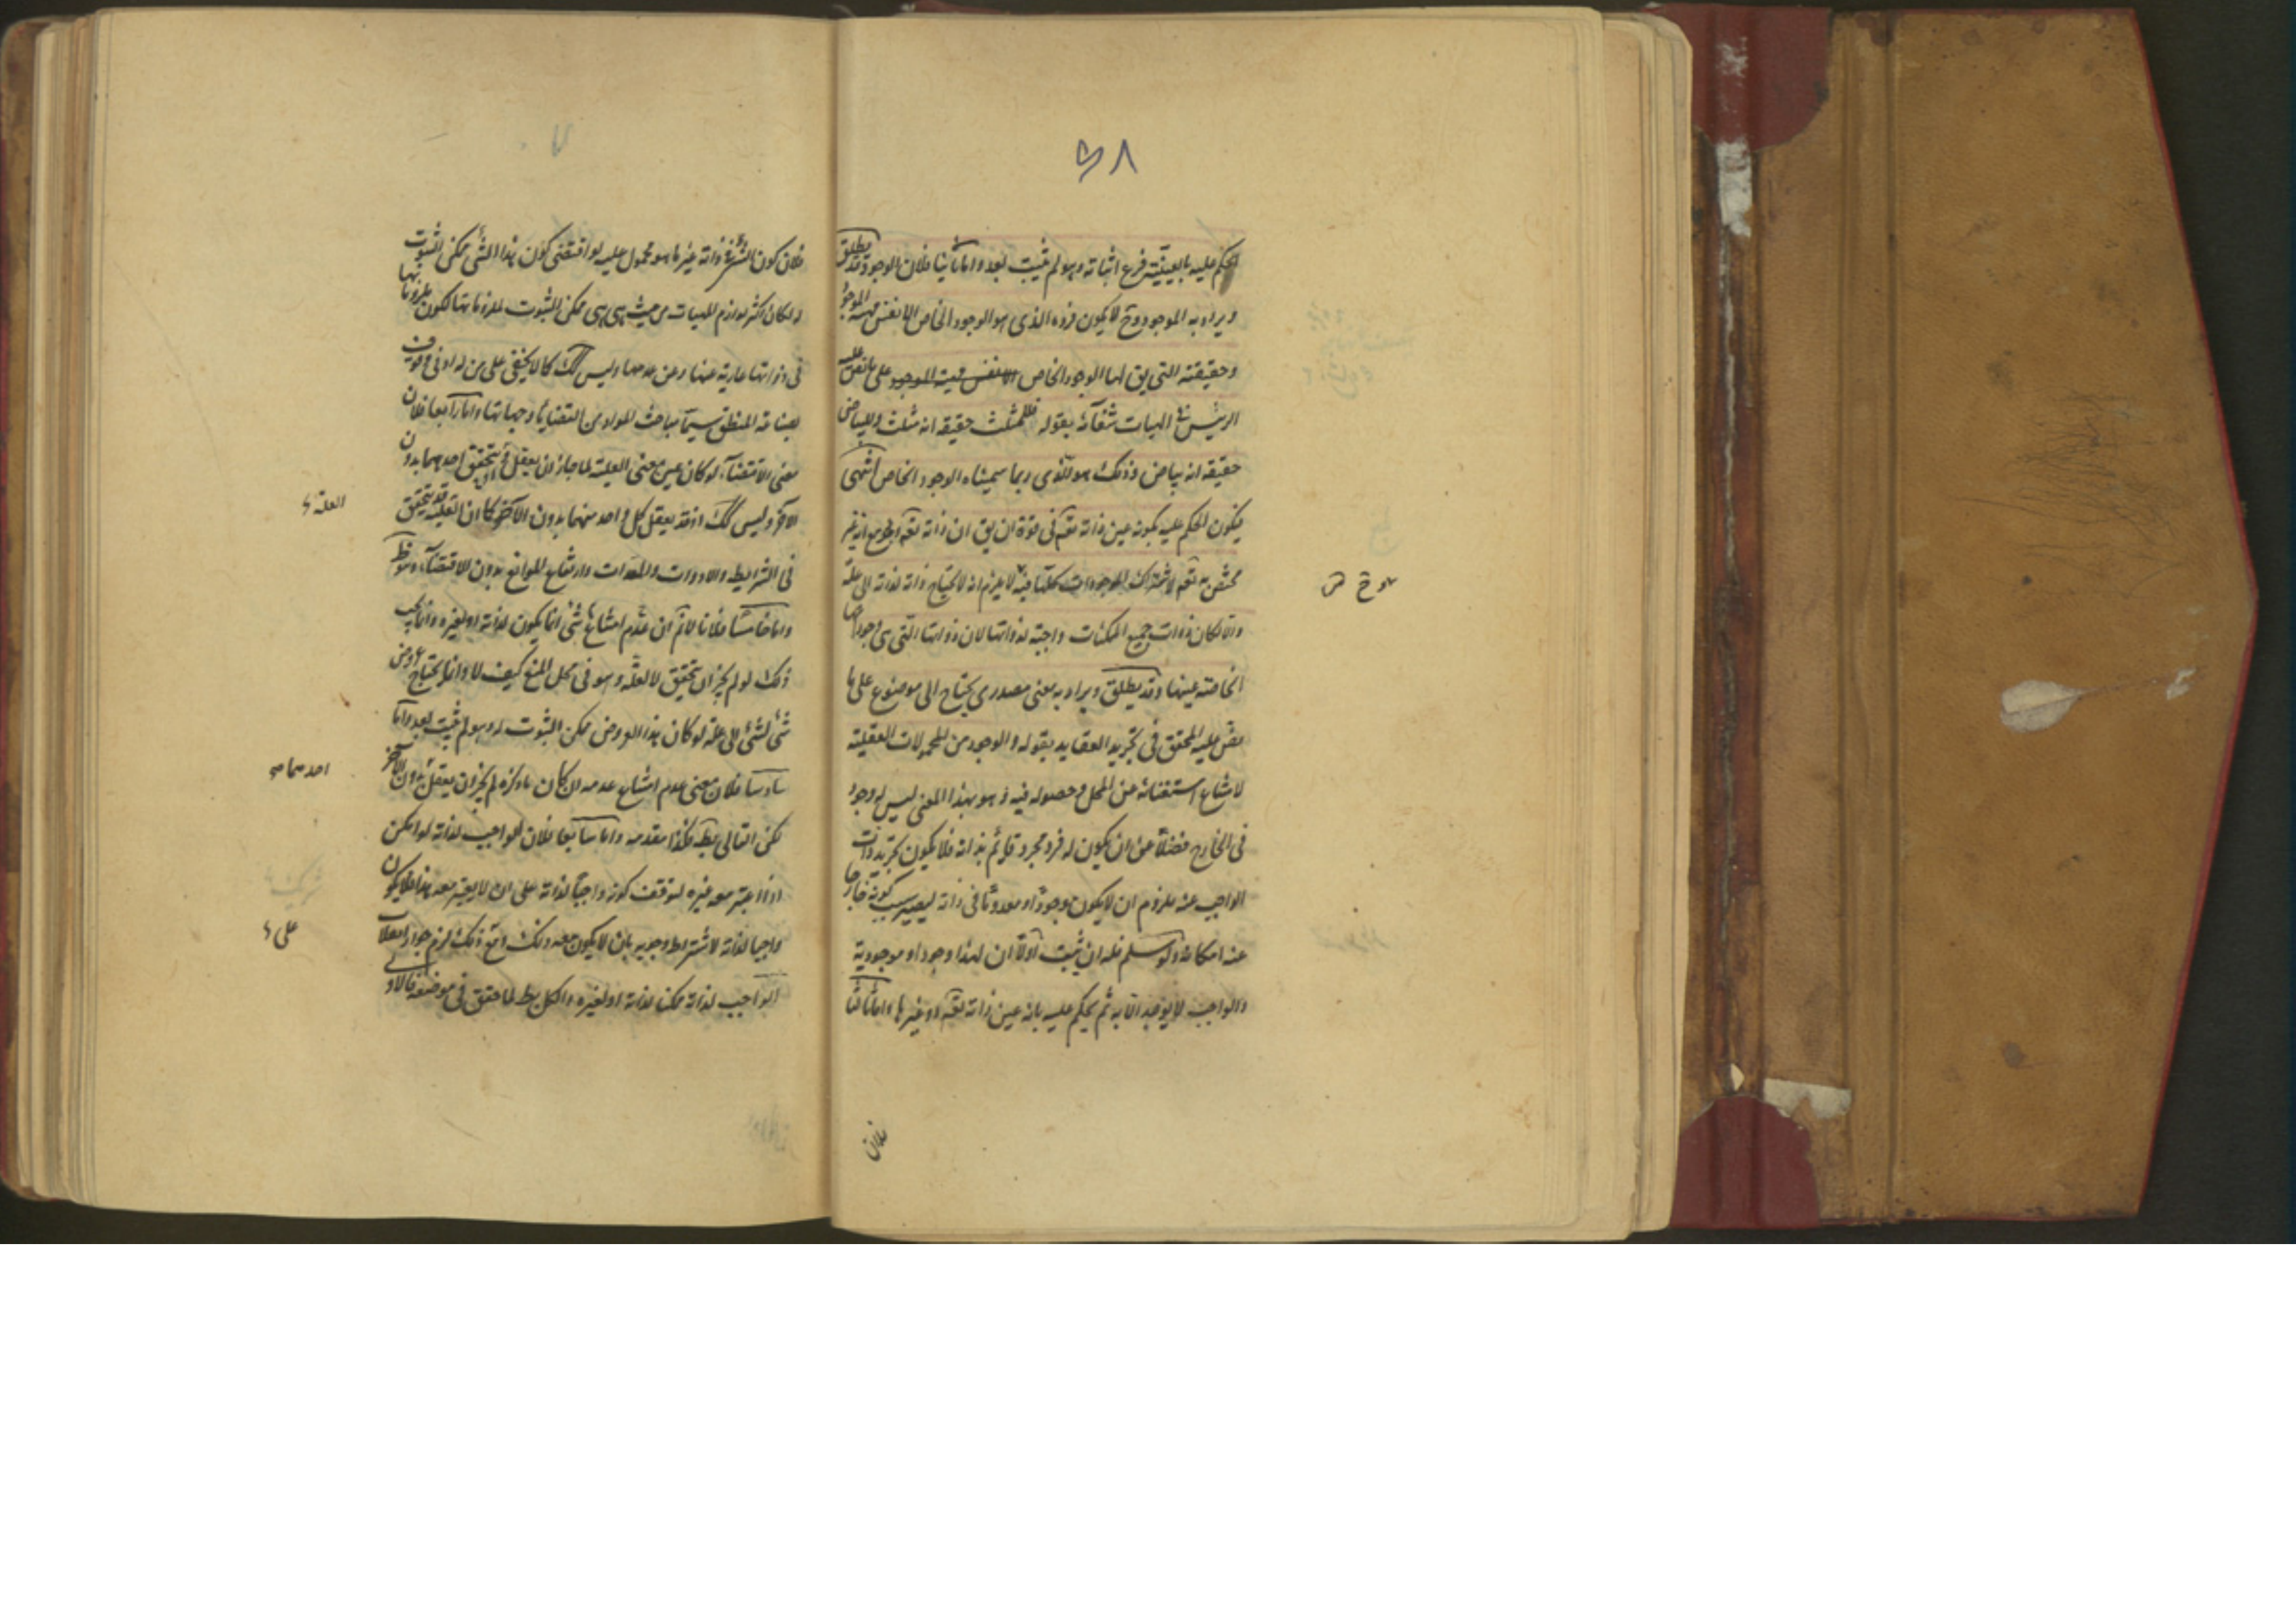 ٥٨
الحكم عليه بالعينية فرع اثباته وهو لم يثبت بعد واما ثانيا فلان الوجود قد يطلق
ويراد به الموجود وح لا يكون فرده الذى هو الوجود الخاص الا نفس مهية الموجود
وحقيقته التى يق لها الوجود الخاص على ما نص عليه
الرئيس فى الهيات شفائه بقوله فللمثلث حقيقة انه مثلث وللبياض
حقيقة انه بياض وذلك هو الذى ربما سميناه الوجود الخاص انتهى
فيكون الحكم عليه بكونه عين ذاته تعم فى قوة ان يق ان ذاته تعم مع انه غير
مختص به تعم لاشتراك الموجودات كلها فيه لا يلزم ان لا يحتاج ذاته لذاته الى علة
والا لكان ذوات جميع الممكنات واجبة لذواتها لان ذواتها التى هى وجوداتها
الخاصة عينها وقد يطلق ويراد به معنى مصدرى يحتاج الى موضوع على ما
نص عليه المحقق فى تجريد العقايد بقوله والوجود من المحمولات العقلية
لامتناع استغنائه عن المحل وحصوله فيه وهو بهذا المعنى ليس له وجود
فى الخارج فضلا عن ان يكون له فرد مجرد قايم بذاته فلا يكون تجريد ذات
الواجب عنه ملزوم ان لا يكون موجودا او معدوما فى ذاته ليصير سبب كونه خارجا
عنه امكانه ولو سلم فله ان يثبت اولا ان لهذا وجود او موجودية
والواجب لا يوجد الا به ثم يحكم عليه بانه عين ذاته تعم او غيرها واما ثالثا
فلان
فلان كون الشئ فى ذاته غير ما هو محمول عليه لو اقتضى كون هذا الشئ ممكن الثبوت
له لكان اكثر لوازم المهيات من حيث هى هى ممكن الثبوت لملزوماتها لكون ملزوماتها
فى ذواتها عارية عنها وعن عدمها وليس كك كما لا يخفى على من له ادنى وقوف
بصناعة المنطق سيما مباحث المواد من القضايا وجهاتها واما رابعا فلان
معنى الاقتضاء لو كان عين معنى العلية لما جاز ان يعقل او يتحقق احدهما بدون
الاخر وليس كك اذ قد يعقل كل واحد منهما بدون الاخر كما ان العلية قد يتحقق
العلة
فى الشرايط والادوات والمعدات وارتفاع الموانع بدون الاقتضاء وهو ظ
واما خامسا فلانا لانم ان عدم امتناع شئ انما يكون لذاته او لغيره وانما يجب
ذلك لو لم يجز ان يتحقق لا لعلة وهو فى محل المنع كيف لا وانما يحتاج عروض
شئ لشئ الى علة لو كان هذا العروض ممكن الثبوت له وهو لم يثبت بعد واما
سادسا فلان معنى عدم امتناع عدمه ان كان ما ذكره لم يجز ان يعقل بدون الاخر
احدهما
لكن التالى بط فكذا مقدمه واما سابعا فلان الواجب لذاته لو امكن
اذا اعتبر معه غيره لتوقف كونه واجبا لذاته على ان لا يعتبر معه هذا فلا يكون
واجبا لذاته لاشتراط وجوبه بان لا يكون معه ذلك ومع ذلك لزم جواز انقلاب
على
الواجب لذاته ممكنا لذاته او لغيره والكل بط لما حقق فى موضعه فالاولى